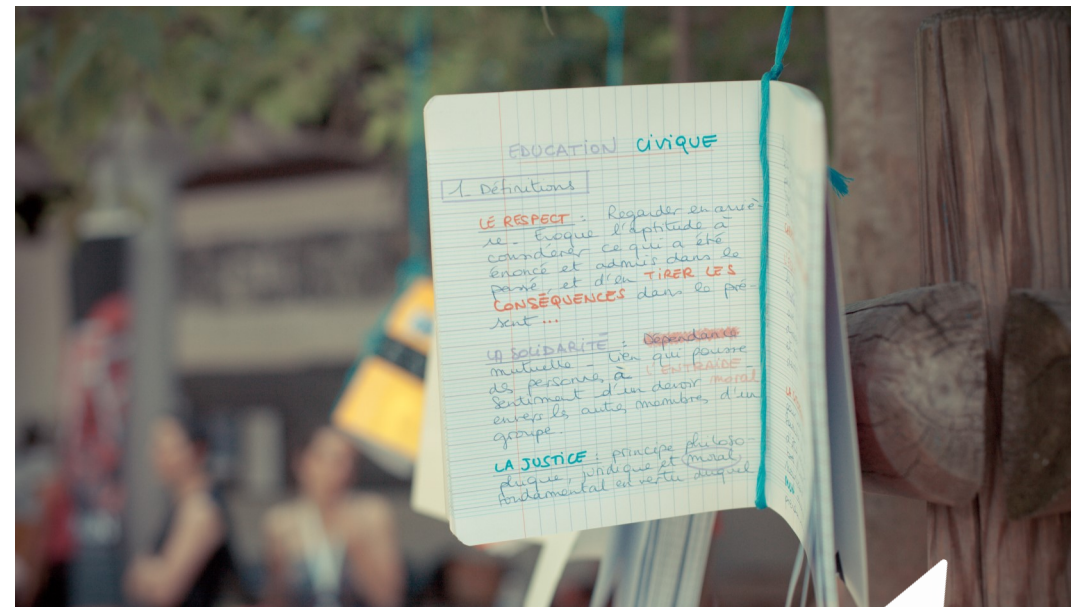 EDUCATION CIVIQUE
1. Définitions
LE RESPECT : Regarder en arriè-
re. Evoque l'aptitude à
considérer ce qui a été
énoncé et admis dans le
passé, et d'en TIRER LES
CONSÉQUENCES dans le pré-
sent ...
LA SOLIDARITÉ : Dépendance
mutuelle - Lien qui pousse
des personnes à L'ENTRAIDE -
Sentiment d'un devoir moral
envers les autres membres d'un
groupe.
LA JUSTICE : principe philoso-
phique, juridique et moral,
fondamental en vertu duquel